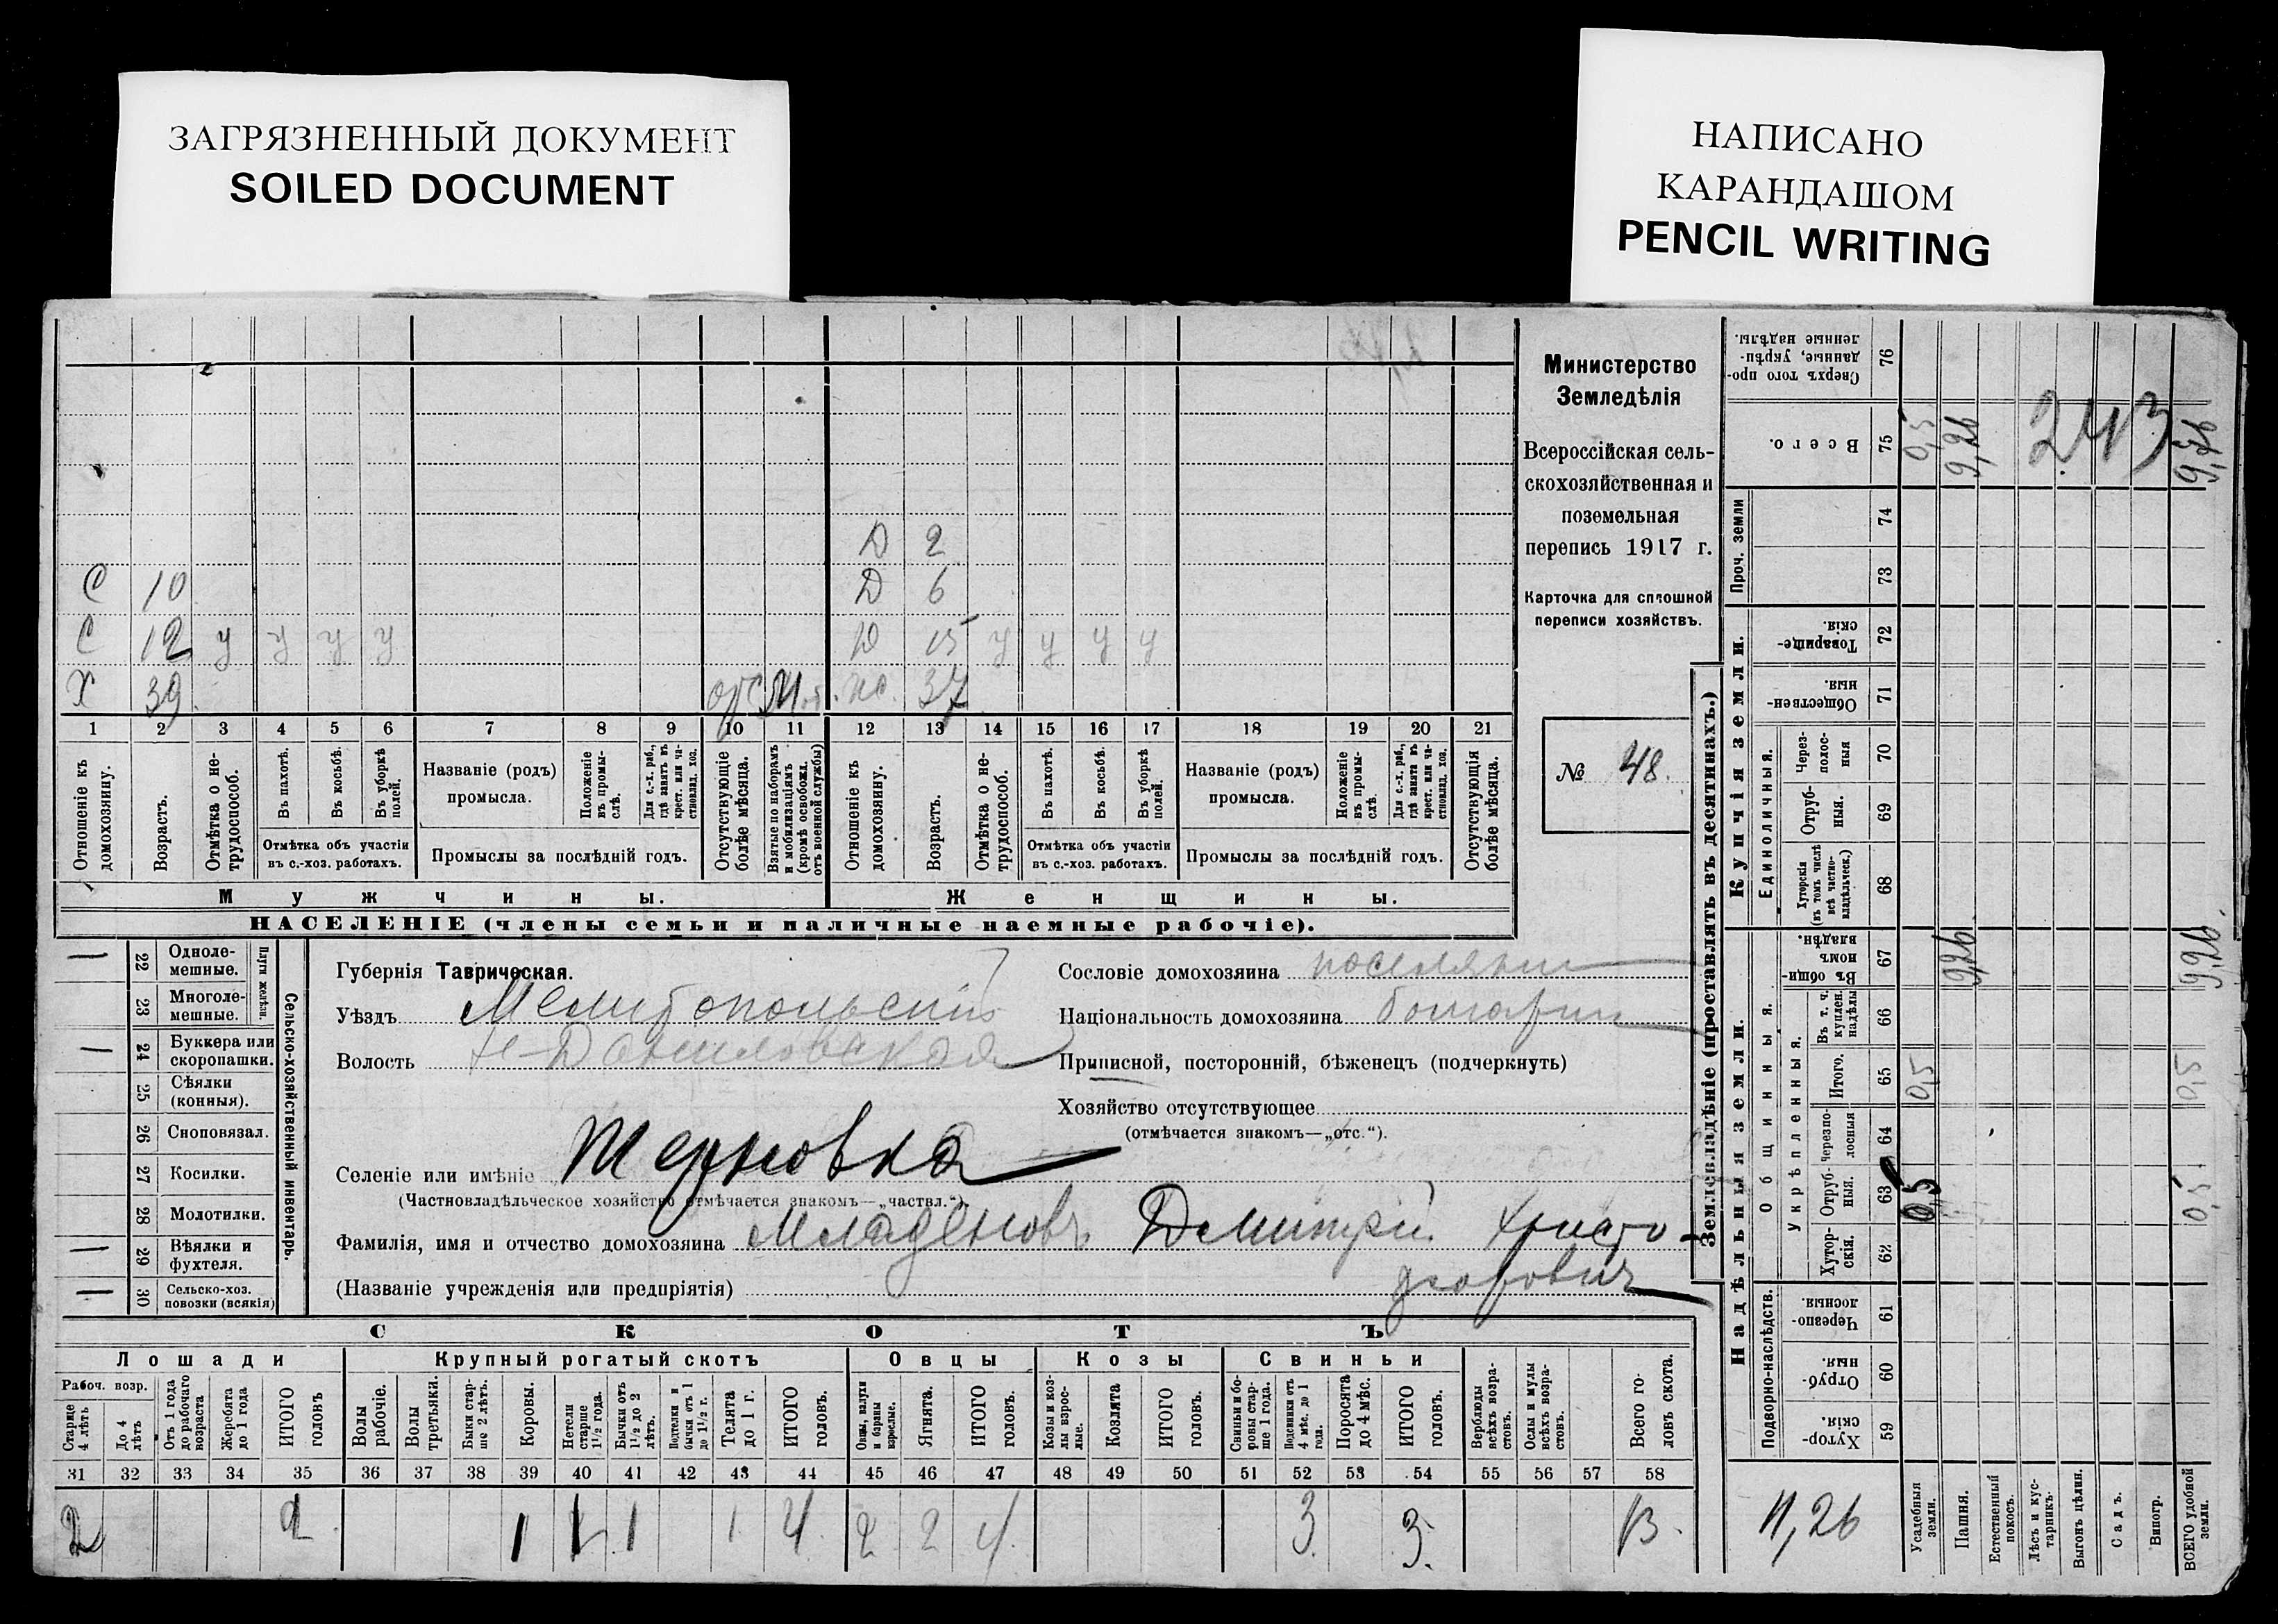 ЗАГРЯЗНЕННЫЙ ДОКУМЕНТ
SOILED DOCUMENT
НАПИСАНО
КАРАНДАШОМ
PENCIL WRITING
Д 2
С 10 Д 6
С 12 у у у у Д 15 у у у у
Х 39 отс М. 37
1 2 3 4 5 6 7 8 9 10 11 12 13 14 15 16 17 18 19 20 21
Отношеніе къ домохозяину.
Возрастъ.
Отмѣтка о не-трудоспособ.
Въ пахотѣ.
Въ косьбѣ.
Въ уборкѣ полей.
Отмѣтка объ участіи
въ с.-хоз. работахъ.
Названіе (родъ)
промысла.
Положеніе въ промы-слѣ.
Для с.-х. раб., гдѣ занятъ въ крест. или ча-стновлад. хоз.
Промыслы за послѣдній годъ.
Отсутствующіе болѣе мѣсяца.
Взятые по наборамъ и мобилизаціямъ (кромѣ освобожд. отъ военной службы)
Отношеніе къ домохозяину.
Возрастъ.
Отмѣтка о не-трудоспособ.
Въ пахотѣ.
Въ косьбѣ.
Въ уборкѣ полей.
Отмѣтка объ участіи
въ с.-хоз. работахъ.
Названіе (родъ)
промысла.
Положеніе въ промы-слѣ.
Для с.-х. раб., гдѣ занята въ крест. или ча-стновлад. хоз.
Промыслы за послѣдній годъ.
Отсутствующія болѣе мѣсяца.
Мужчины.
Женщины.
НАСЕЛЕНІЕ (члены семьи и наличные наемные рабочіе).
Министерство
Земледѣлія
Всероссійская сель-
скохозяйственная и
поземельная
перепись 1917 г.
Карточка для сплошной
переписи хозяйствъ.
№ 48.
— 22 Одноле-мешные.
23 Многоле-мешные.
Плуги желѣзн.
— 24 Буккера или скоропашки.
25 Сѣялки (конныя).
26 Сноповязал.
27 Косилки.
28 Молотилки.
— 29 Вѣялки и фухтеля.
— 30 Сельско-хоз. повозки (всякія)
Сельско-хозяйственный инвентарь.
Губернія Таврическая.
Уѣздъ Мелитопольскій
Волость Н-Даниловская
Селеніе или имѣніе Терновка
(Частновладѣльческое хозяйство отмѣчается знакомъ—„частвл.“)
Фамилія, имя и отчество домохозяина Младеновъ Дмитрій Христо-
форовичъ
(Названіе учрежденія или предпріятія)
Сословіе домохозяина поселянин
Національность домохозяина болгарин
Приписной, посторонній, бѣженецъ (подчеркнуть)
Хозяйство отсутствующее
(отмѣчается знакомъ—„отс.“).
СКОТЪ
Лошади
Крупный рогатый скотъ
Овцы
Козы
Свиньи
Рабоч. возр.
Старше 4 лѣтъ
До 4 лѣтъ
Отъ 1 года до рабочаго возраста
Жеребята до 1 года
ИТОГО головъ
Волы рабочіе.
Волы третьяки.
Быки стар-ше 2 лѣтъ.
Коровы.
Нетели старше 1½ года.
Бычки отъ 1½ до 2 лѣтъ.
Подтелки и бычки отъ 1 до 1½ г.
Телята до 1 г.
ИТОГО головъ.
Овцы, валухи и бараны взрослые.
Ягнята.
ИТОГО головъ.
Козы и коз-лы взрос-лые.
Козлята
ИТОГО головъ.
Свиньи и бо-ровы стар-ше 1 года.
Подсвинки отъ 4 мѣс. до 1 года.
Поросята до 4 мѣс.
ИТОГО головъ.
Верблюды всѣхъ возра-стовъ.
Ослы и мулы всѣхъ возра-стовъ.
Всего го-ловъ скота.
31 32 33 34 35 36 37 38 39 40 41 42 43 44 45 46 47 48 49 50 51 52 53 54 55 56 57 58
2 2 1 1 1 1 4 2 2 4 3 3. 13.
Землевладѣніе (проставлять въ десятинахъ.)
Надѣльныя земли.
Купчія земли.
Проч. земли
Подворно-наслѣдств.
Общинныя.
Укрѣпленныя.
Единоличныя.
Сверхъ того про-данные, укрѣп-ленные надѣлы. 76
Всего. 75 0,5 9,26 243 9,76
74
73
Товарище-скія. 72
Обществен-ныя. 71
Черезполос-ныя 70
Отруб-ныя. 69
Хуторскія (въ томъ числѣ всѣ частно-владѣльческ.) 68
Въ общин. владѣн. 67 9,26 9,26.
Въ т. ч. куплен. надѣлы 66
Итого. 65 0,5 0,5
Черезпо-лосныя 64
Отруб-ныя. 63 0,5 0,5
Хутор-скія. 62
Черезпо-лосныя 61
Отруб-ныя 60
Хутор-скія 59
11,26
Усадебныя земли.
Пашня.
Естественный покосъ.
Лѣсъ и кус-тарникъ.
Выгонъ цѣлин.
Садъ.
Виногр.
ВСЕГО удобной земли.